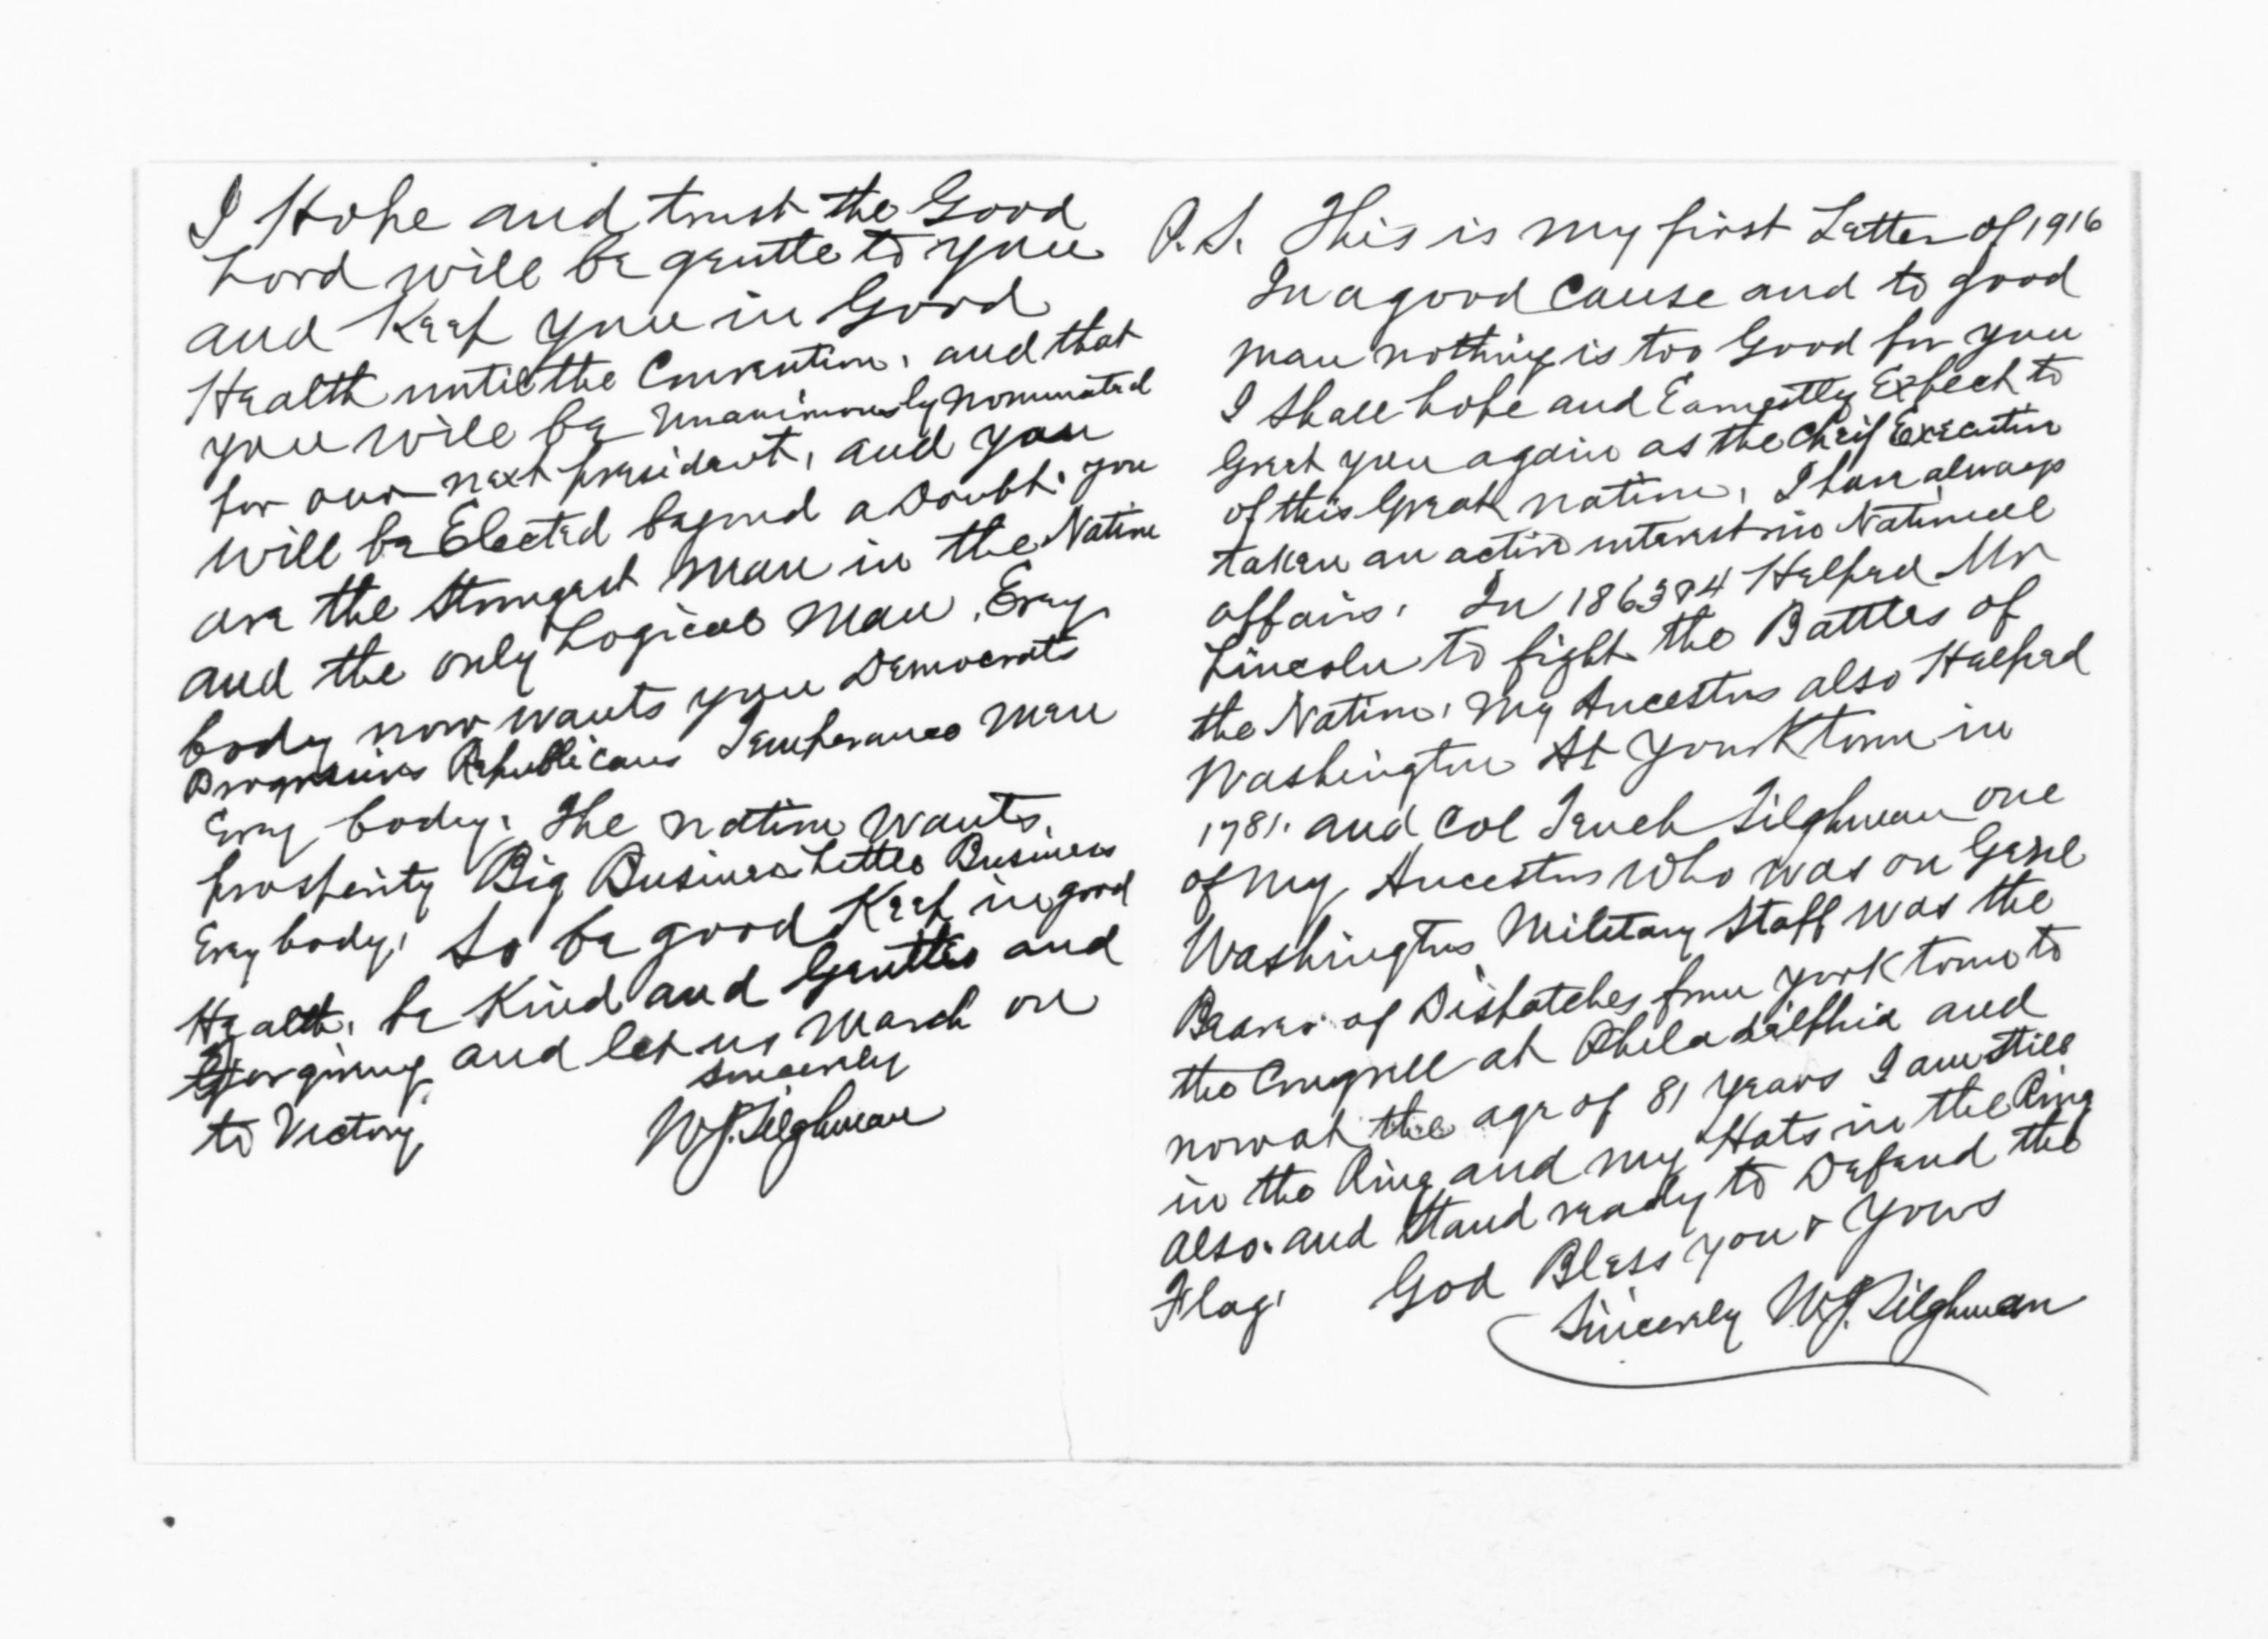 I Hope and trust the Good
Lord will be gentle to you
and Keep you in Good
Health until the Convention, and that
you will be unanimously nominated
for our next president, and you
will be Elected beyond a Doubt. you
are the strongest man in the Nation
and the only Logical man. Every
body now wants you Democrats
Progressives Republicans Temperance men
Every body. The nation wants
prosperity Big Business Little Business
Everybody. So be good Keep in good
Health. be Kind and Gentle and
Forgiving and let us March on
to Victory
sincerely
W J. Tilghman
P.S. This is my first Letter of 1916
In a good Cause and to good
man nothing is too Good for you
I shall hope and Earnestly Expect to
Greet you again as the Cheif Executive
of this Great nation, I have always
taken an active interest in National
affairs. In 1863 & 4 Helped Mr
Lincoln to fight the Battles of
the Nation. My Ancestors also Helped
Washington At Yorktown in
1781. and Col Tench Tilghman one
of my Ancestors Who was on Genl
Washingtons Military Staff was the
Bearer of Dispatches from York town to
the Congress at Philadelphia and
now at the age of 81 years I am still
in the Ring and my Hats in the Ring
also. and stand ready to Defend the
Flag. God Bless you & Yours
Sincerely W J. Tilghman